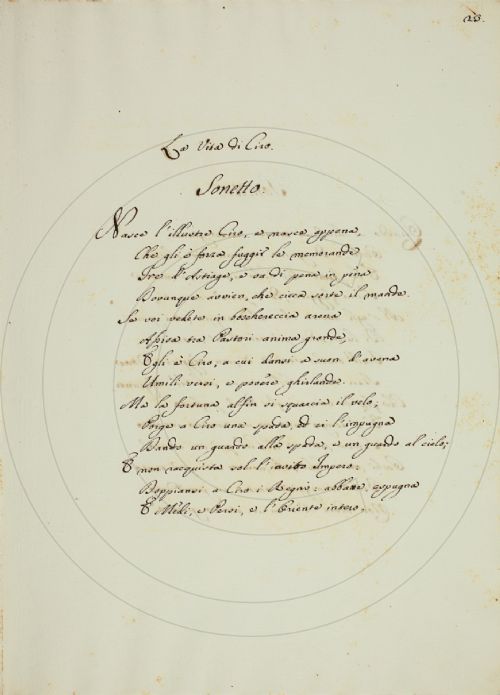 23.
La Vita di Ciro.
Sonetto.
Nasce l'illustre Ciro, e nasce appena,
Che gli è forza fuggir le memorande
Ire d'Astiage, e va di pena in pena
Dovunque avvien, che cieca sorte il mande.
Se voi vedete in boschereccia arena
Assisa tra Pastori anima grande,
Egli è Ciro, a cui dansi a suon d'avena
Umili versi, e povere ghirlande.
Ma la fortuna alfin si squarcia il velo,
Porge a Ciro una spada, ed ei l'impugna
Dando un guardo alla spada, e un guardo al cielo;
E non racquista sol l'avito Impero:
Doppiansi a Ciro i Regni: abbatte, espugna
E Medi, e Persi, e l'Oriente intero.